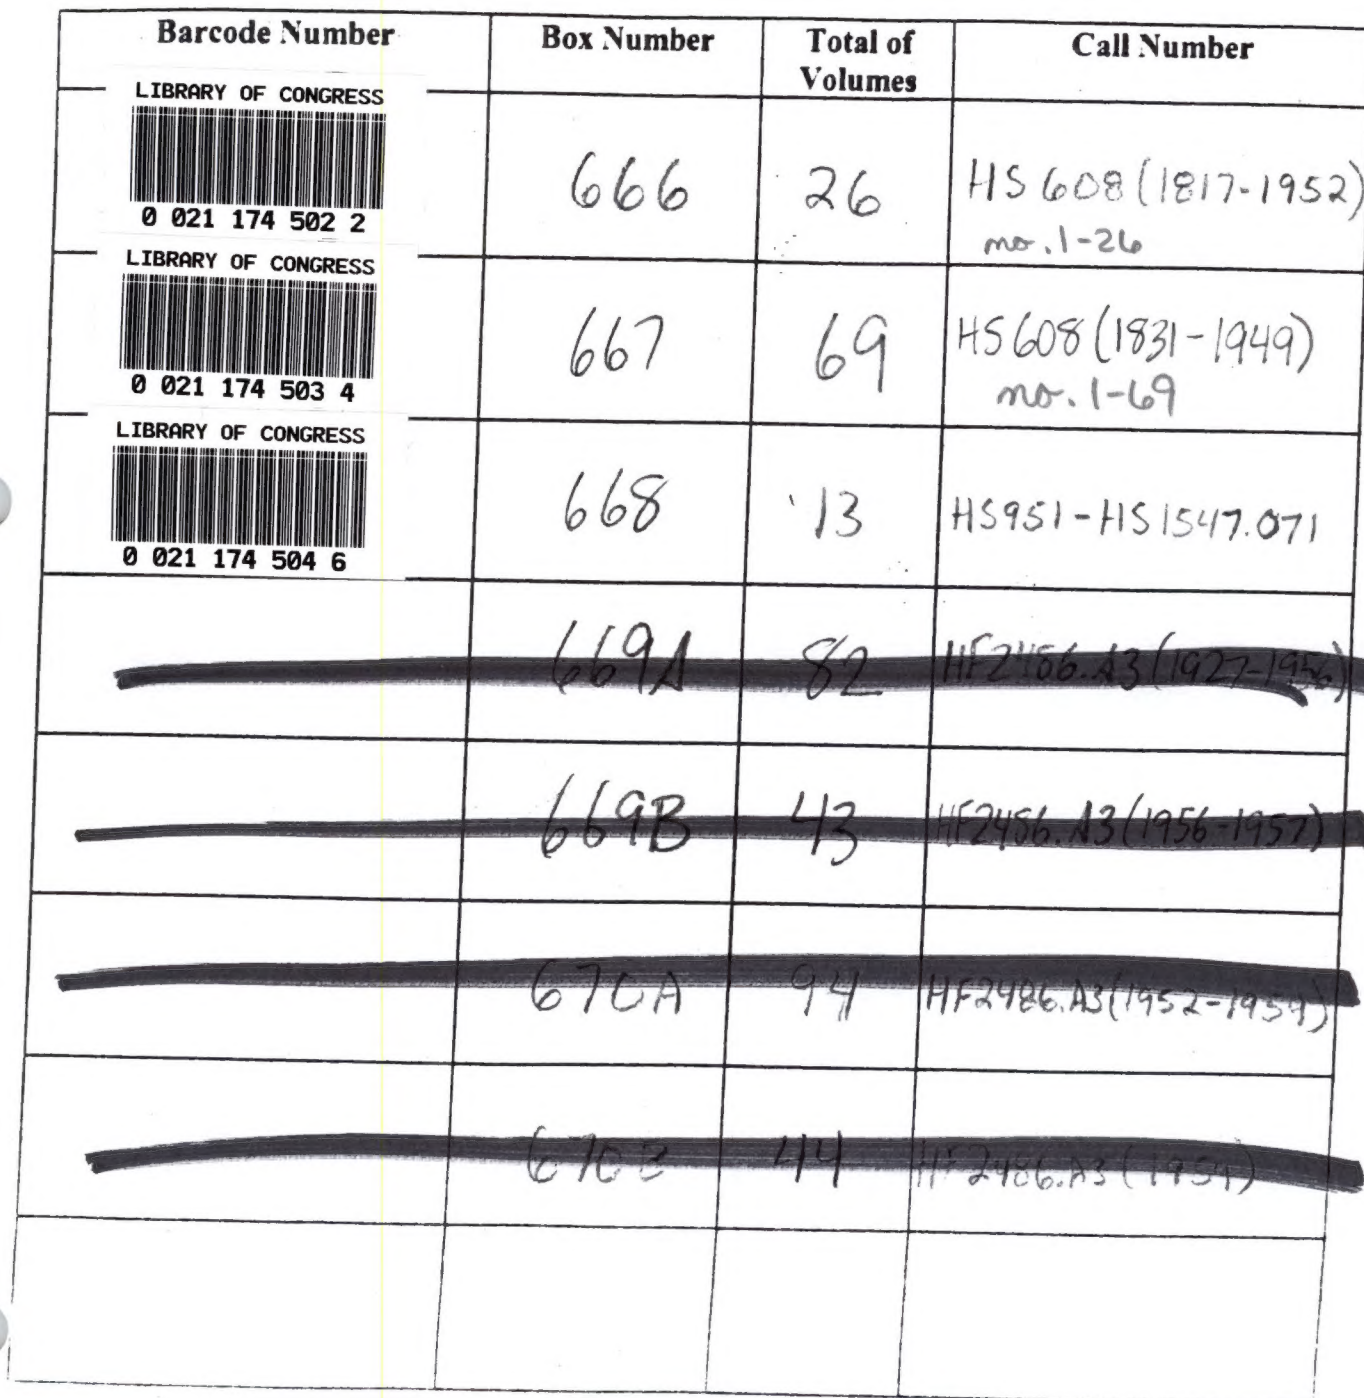 Barcode Number Box Number Total of Volumes Call Number
LIBRARY OF CONGRESS
0 021 174 502 2
666 26 HS 608 (1817-1952)
no. 1-26
LIBRARY OF CONGRESS
0 021 174 503 4
667 69 HS 608 (1831-1949)
no. 1-69
LIBRARY OF CONGRESS
0 021 174 504 6
668 13 HS951-HS1547.071
669A 82 HF2486.A3 (1927-1956)
669B 43 HF2486.A3 (1956-1957)
670A 94 HF2486.A3 (1952-1959)
670B 44 HF2486.A3